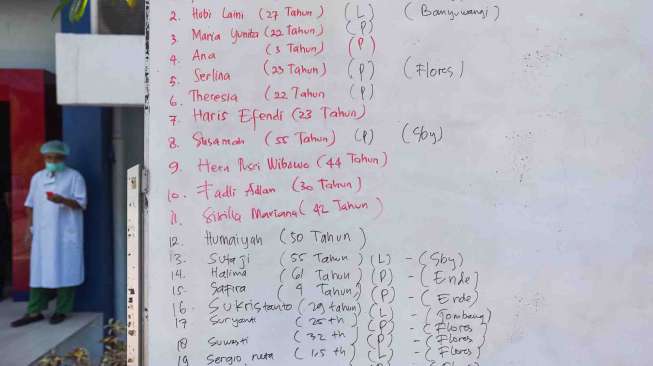 2. Hobi Laini (27 Tahun) (L) (Banyuwangi)
3. Maria Yunita (22 Tahun) (P)
4. Ana (3 Tahun) (P)
5. Serlina (23 Tahun) (P) (Flores)
6. Theresia (22 Tahun (P)
7. Haris Efendi (23 Tahun)
8. Susamah (55 Tahun) (P) (Sby)
9. Heru Pusri Wibowo (44 Tahun)
10. Fadli Adlan (30 Tahun)
11. Sirilia Mariana (42 Tahun)
12. Humaiyah (50 Tahun)
13. Sutaji (55 Tahun) (L) - (Sby)
14. Halima (61 Tahun) (P) - (Ende)
15. Safira (4 Tahun) (P) - (Ende)
16 - Sukristanto (29 tahun) (L) - (Jombang)
17 Suryanti (25 th) (P) - (Flores)
18 Suwasti (32 th) (P) - (Flores)
19 Sergio (1,5 th) (L) - (Flores)